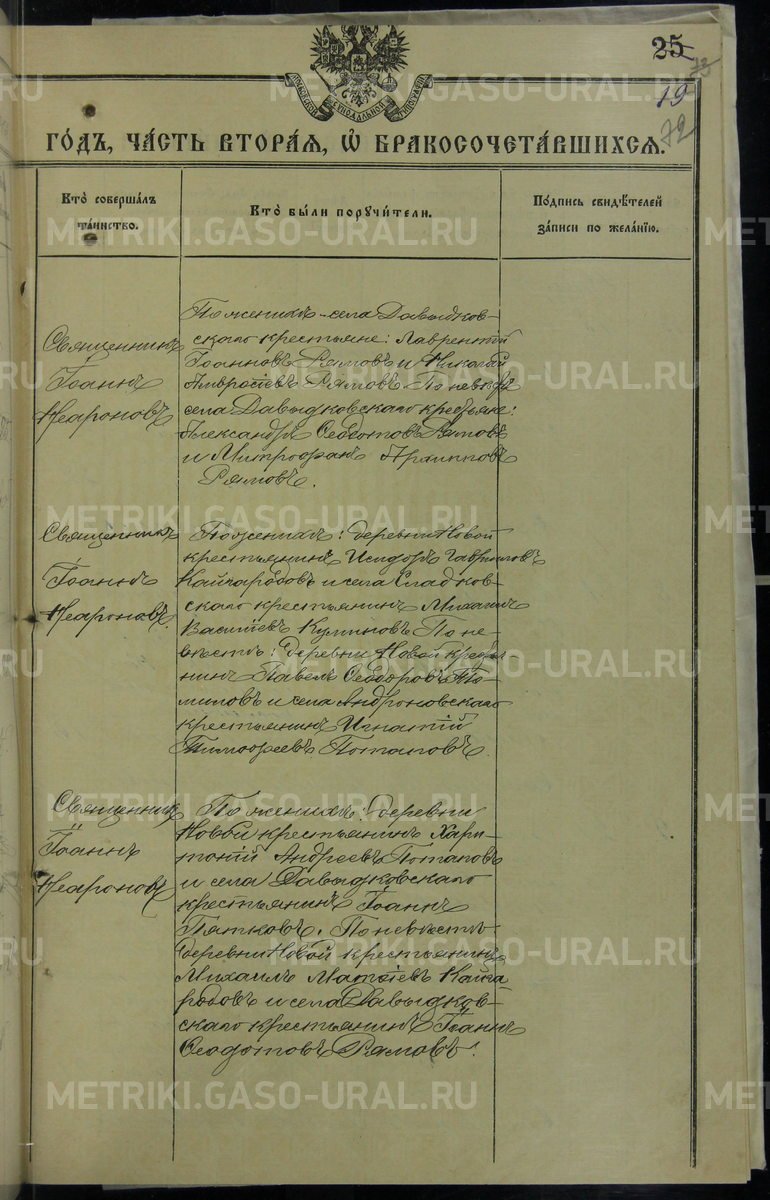 25
73
19
72
МОСКОВСКОЙ СѴНОДАЛЬНОЙ ТИПОГРАФІИ
ГО́ДЪ, ЧА́СТЬ ВТОРА́Я, Ѽ БРАКОСОЧЕТА́ВШИХСЯ.
Кто̀ соверша́лъ
та́инство.
Кто̀ бы́ли поручи́тели.
По́дпись свидѣ́телей
за́писи по жела́нїю.
Священникъ
Іоаннъ
Неароновъ
По женихѣ - села Давыдков-
скаго крестьяне: Лаврентій
Іоанновъ Рямовъ и Николай
Амвросіевъ Рямовъ. По невѣстѣ
села Давыдковскаго крестьяне:
Александръ Ѳеодотовъ Рямовъ
и Митрофанъ Архипповъ
Рямовъ.
Священникъ
Іоаннъ
Неароновъ.
По женихѣ: деревни Новой
крестьянинъ Исидоръ Гавриловъ
Кайгародовъ и села Сладков-
скаго крестьянинъ Михаилъ
Василіевъ Куминовъ. По не-
вѣстѣ: деревни Новой крестья
нинъ Павелъ Ѳеодоровъ То-
миловъ и села Андроновскаго
крестьянинъ Игнатій
Тимоѳеевъ Потаповъ.
Священникъ
Іоаннъ
Неароновъ
По женихѣ: деревни
Новой крестьянинъ Хари-
тоній Андреевъ Потаповъ
и села Давыдковскаго
крестьянинъ Іоаннъ
Пятковъ. По невѣстѣ
деревни Новой крестьянинъ
Михаилъ Матѳіевъ Кайга
родовъ и села Давыдков-
скаго крестьянинъ Іоаннъ
Ѳеодотовъ Рямовъ.
METRIKI.GASO-URAL.RU